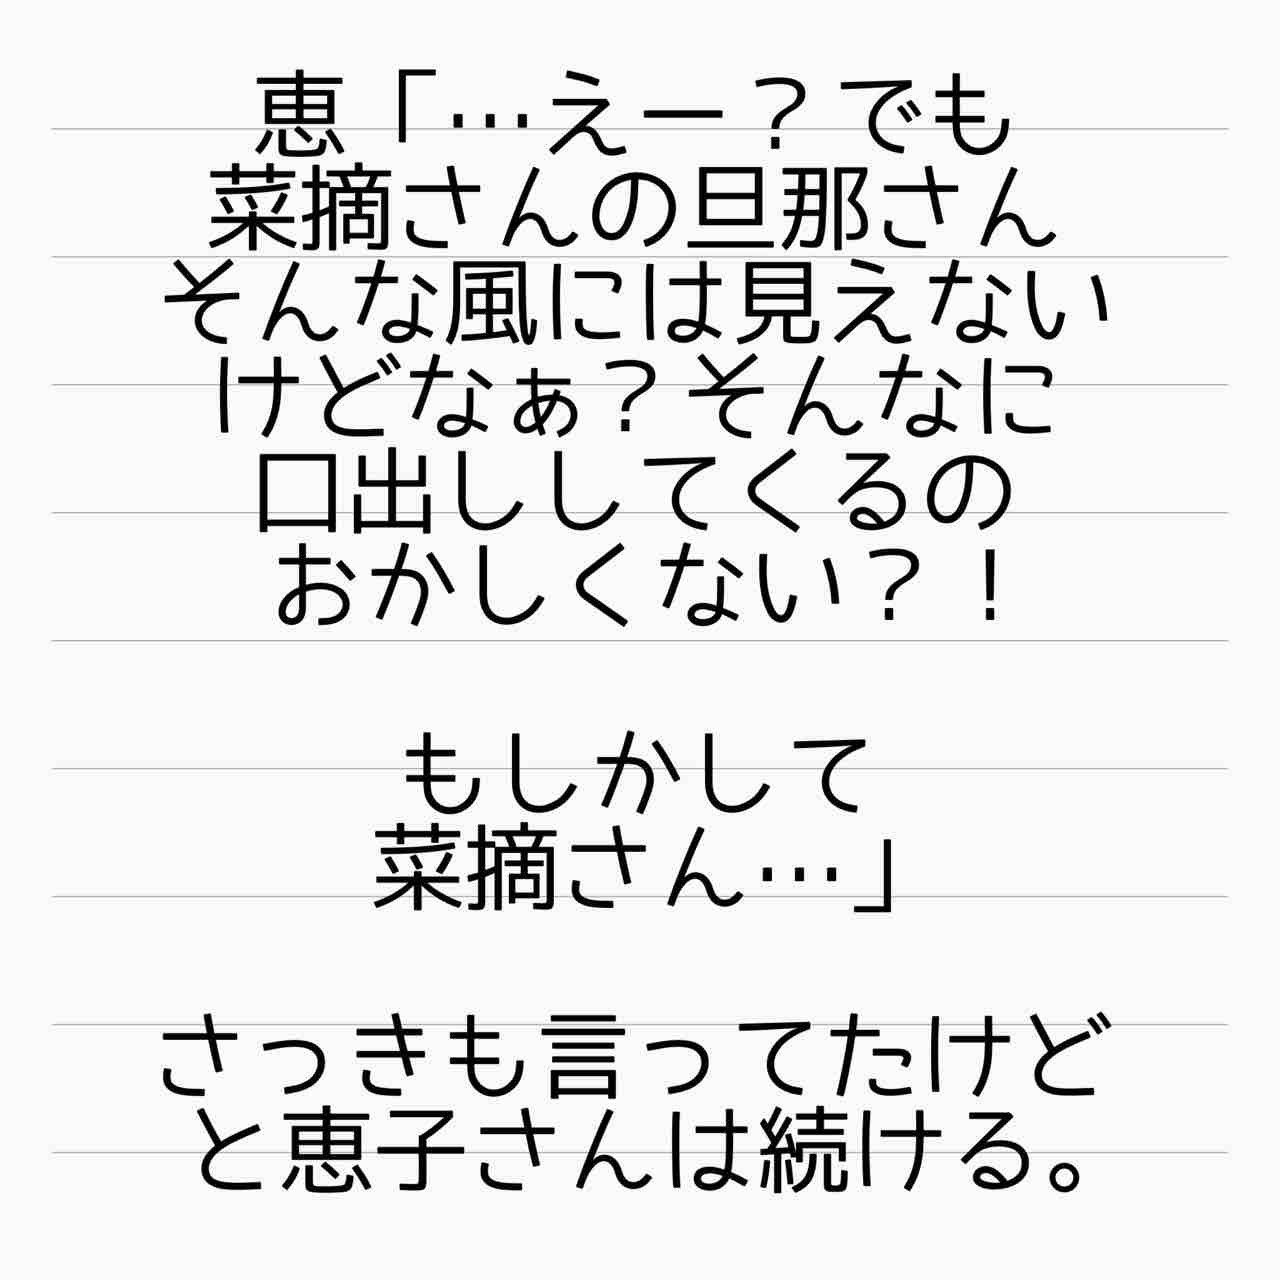 恵「…えー？でも
菜摘さんの旦那さん
そんな風には見えない
けどなぁ？そんなに
口出ししてくるの
おかしくない？！
もしかして
菜摘さん…」
さっきも言ってたけど
と恵子さんは続ける。